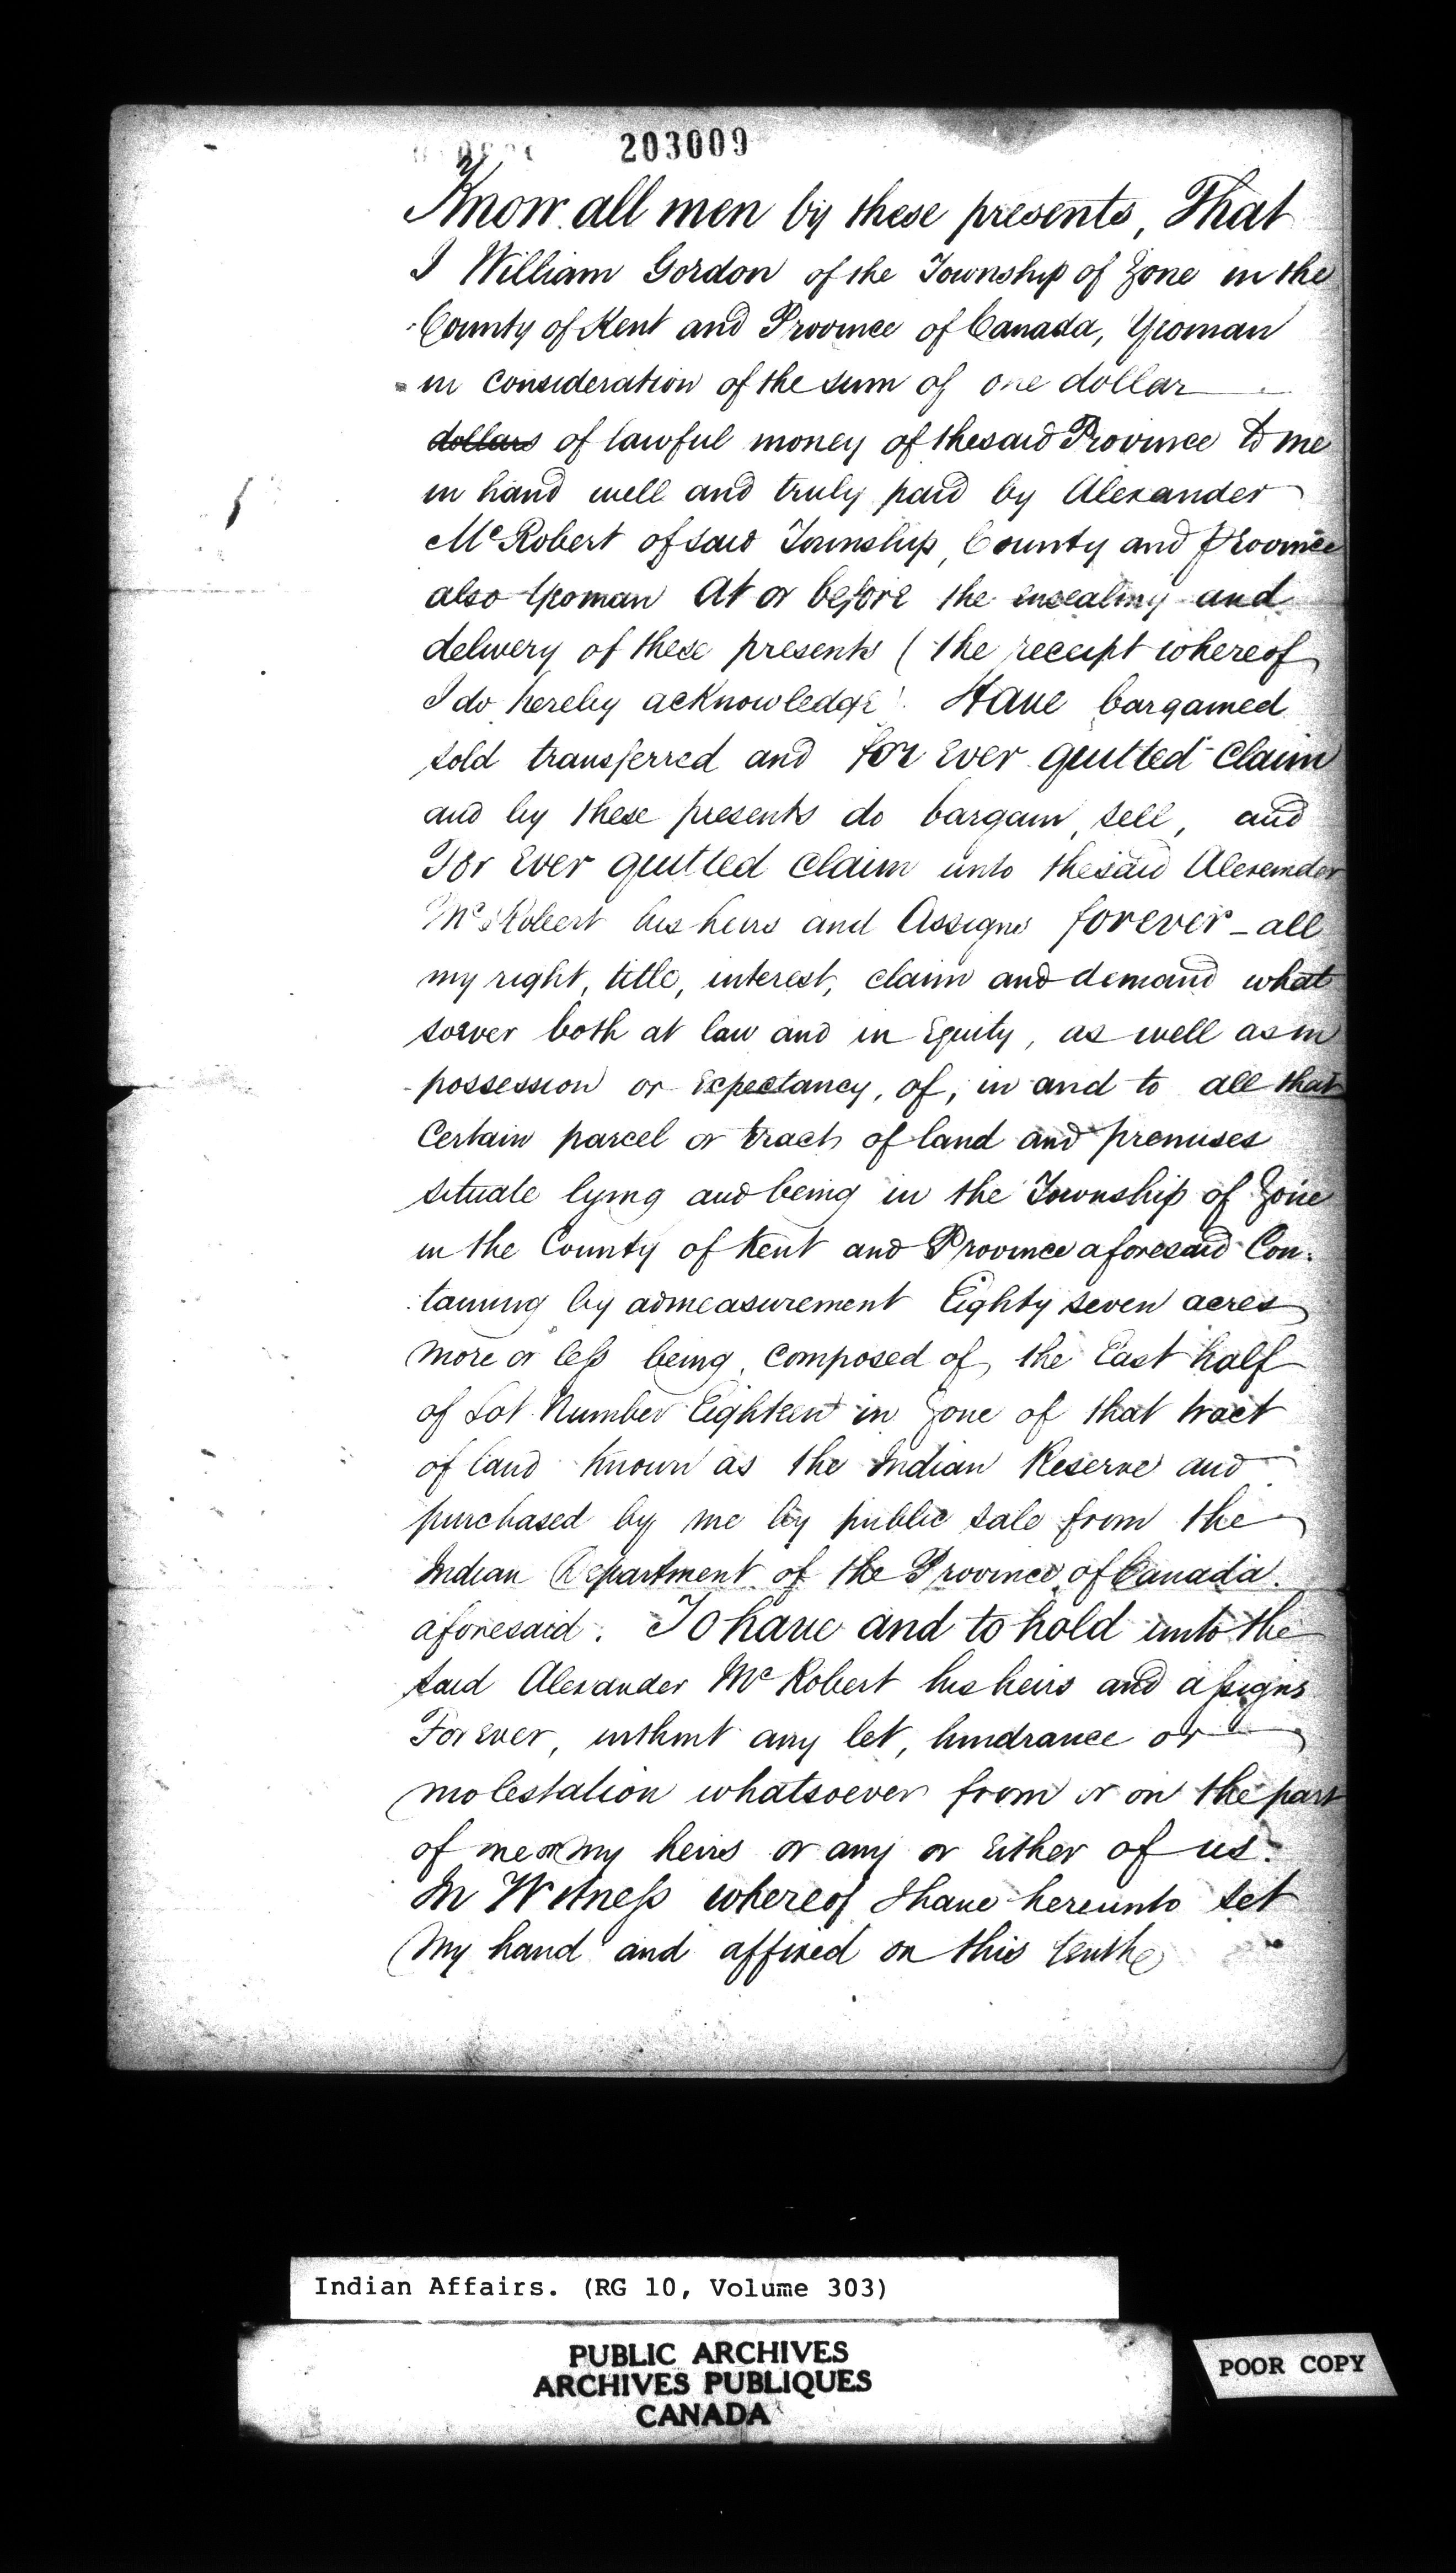 203009
Know all men by these presents, That
I William Gordon of the Township of Zone in the
County of Kent and Province of Canada, Yeoman
in consideration of the sum of one dollar
dollars of lawful money of the said Province to me
in hand well and truly paid by Alexander
McRobert of said Township, County and Province
also Yeoman At or before the ensealing and
delivery of these presents (the receipt whereof
I do hereby acknowledge) Have bargained
sold transferred and for Ever quitted claim
and by these presents do bargain, sell, and
For Ever quitted claim unto the said Alexander
McRobert his heirs and Assigns forever - all
my right, title, interest, claim and demand what
soever both at law and in Equity, as well as in
possession or Expectancy, of, in and to all that
Certain parcel or tract of land and premises
situate lying and being in the Township of Zone
in the County of Kent and Province aforesaid Con-
taining by admeasurement Eighty seven acres
more or less being composed of the East half
of Lot Number Eighteen in Zone of that tract
of land known as the Indian Reserve and
purchased by me by public sale from the
Indian Department of the Province of Canada
aforesaid. To have and to hold unto the
said Alexander McRobert his heirs and assigns
For Ever, without any let, hindrance or
molestation whatsoever from or on the part
of me or my heirs or any or Either of us.
In Witness whereof I have hereunto set
my hand and affixed on this tenth
Indian Affairs. (RG 10, Volume 303)
PUBLIC ARCHIVES
ARCHIVES PUBLIQUES
CANADA
POOR COPY